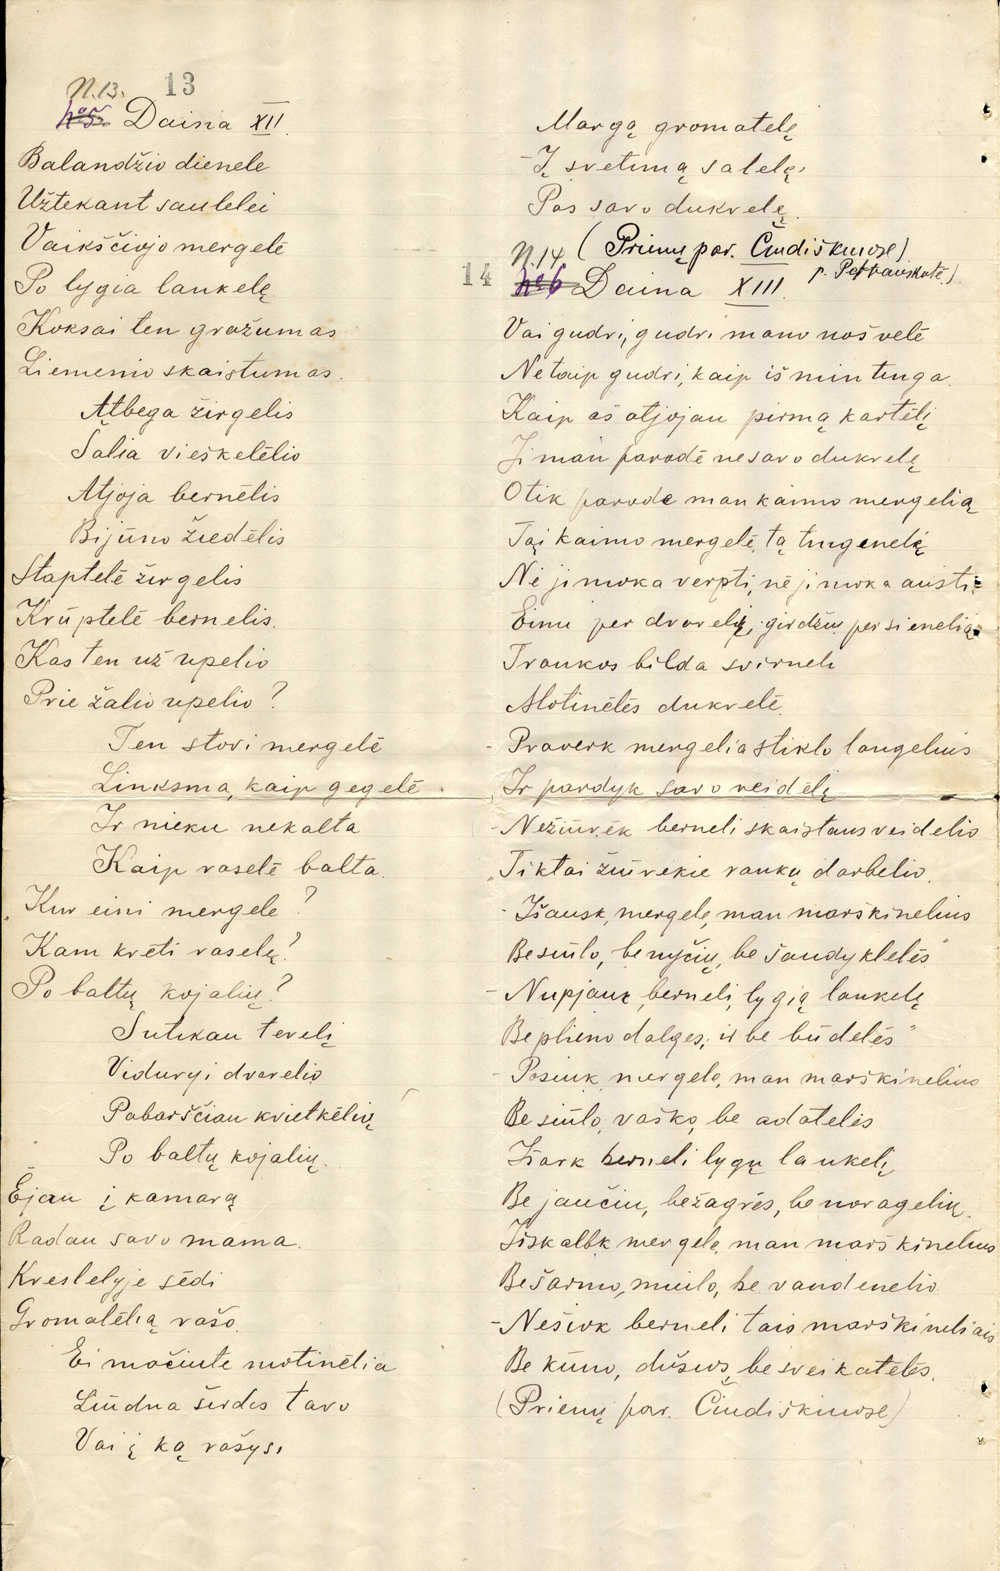 N.13. 13
Daina XII.
Balandžio dienele
Užtekant saulelei
Vaikščiojo mergelė
Po lygia laukelę
Koksai ten gražumas
Liemenio skaistumas.
Atbėga žirgelis
Šalia vieškelėlio
Atjoja bernėlis
Bijūno žiedėlis
Staptelė žirgelis
Krūptelė bernelis.
Kas ten už upelio
Prie žalio upelio?
Ten stovi mergelė
Linksma, kaip gegelė.
Ir nieku nekalta
Kaip raselė balta.
„Kur eini mergele?
Kam krėti raselę?
Po baltų kojalių?
Sutikau tevelį
Viduryj dvarelio
Pabarščiau kvietkėlių
Po baltų kojalių.
Ėjau į kamarą
Radau savo mama.
Kreslelyje sėdi
Gromatėlią rašo.
Ei močiute motinėlia
Liūdna širdis tavo
Vai į ką rašysi
Margą gromatelę
Į svetimą salelę,
Pas savo dukrelę.
(Prienų par. Čiudiškiuose)
N.14
14 Daina XIII.
Vai gudri, gudri mano uošvelė
Netaip gudri, kaip išmintinga.
Kaip aš atjojau pirmą kartėlį
Ji man parodė ne savo dukrelę
O tik parodė man kaimo mergelią
Tąi kaimo mergelė, tą tingenelę
Nė ji moka verpti, nė ji moka austi.
Einu per dvarelį, girdžiu per sienelią
Traukos bilda svirneli
Motinėlės dukrelė.
- Praverk mergelia stiklo langelius
Ir parodyk savo veidėlį
- Nežiūrėk berneli skaistaus veidelio
„Tiktai žiūrėkie rankų darbelio.
- Išausk, mergele, man marškinelius
Be siūlo, be nyčių, be šaudyklelės"
- Nupjauk, berneli, lygią laukelę
Be plieno dalgės, ir be būdelės"
- Pasiuk, mergele, man marškinelius
Be siūlo, vaško, be adatėlės
Išark berneli lygų laukelį
Be jaučiu, be žagrės, be noragelių.
Iškalbk mergele, man marškinelius
Be šarmo, muilo, be vandenelio
- Nešiok berneli tais marškineliais
Be kūno, dūšios, be sveikatėlės.
(Prienų par. Čiudiškiuose)